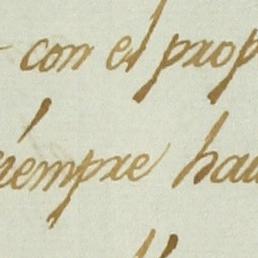 con el prop
siempre hau